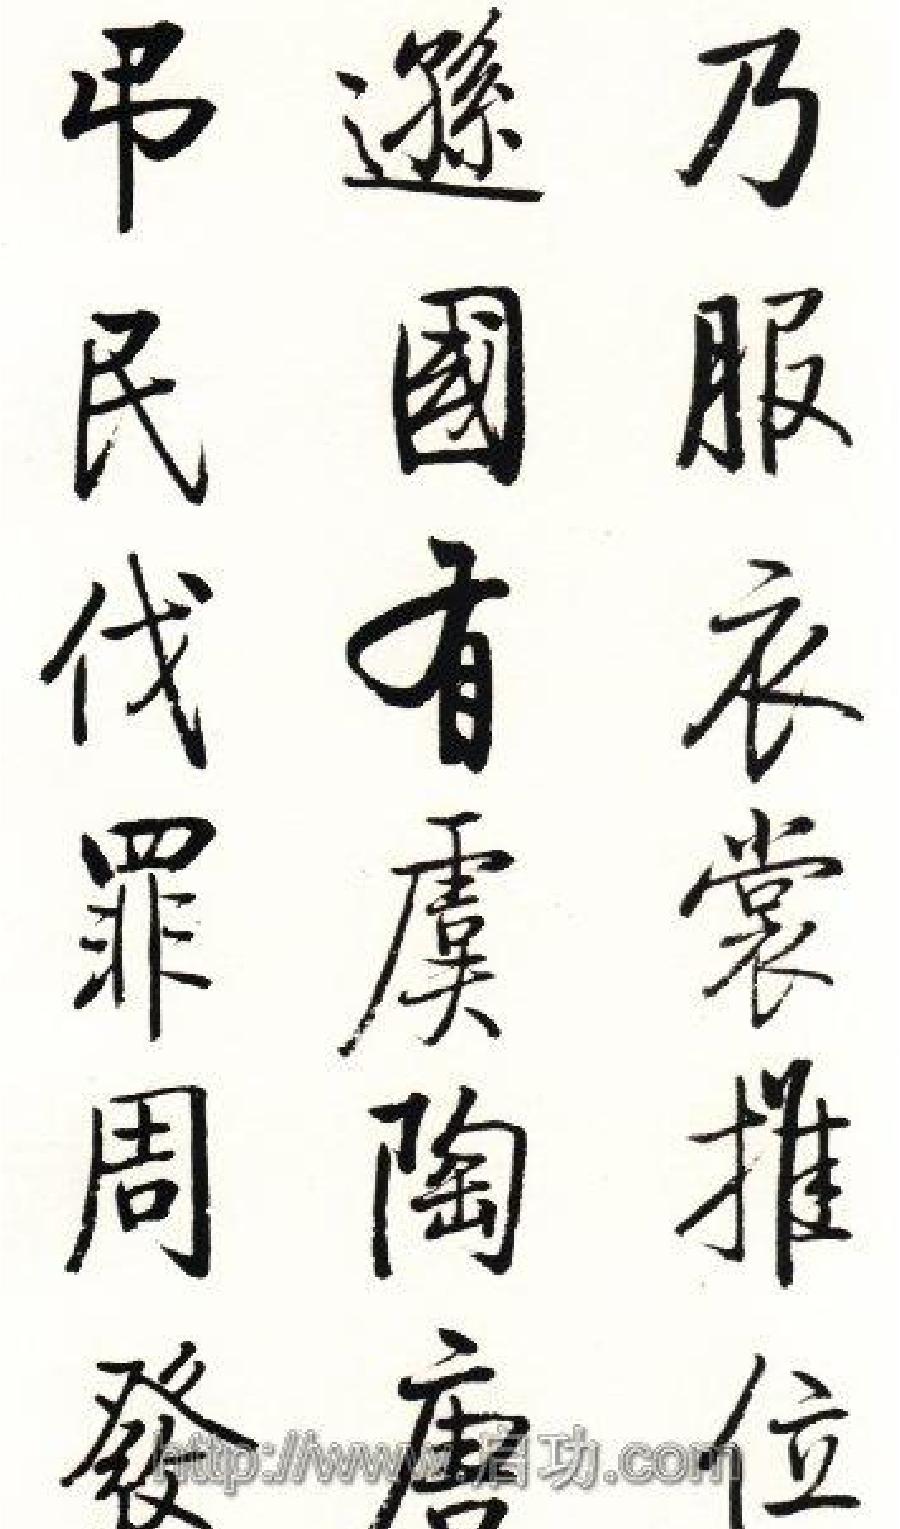 乃服衣裳推位
遜國有虞陶唐
弔民伐罪周發
http://www.启功.com